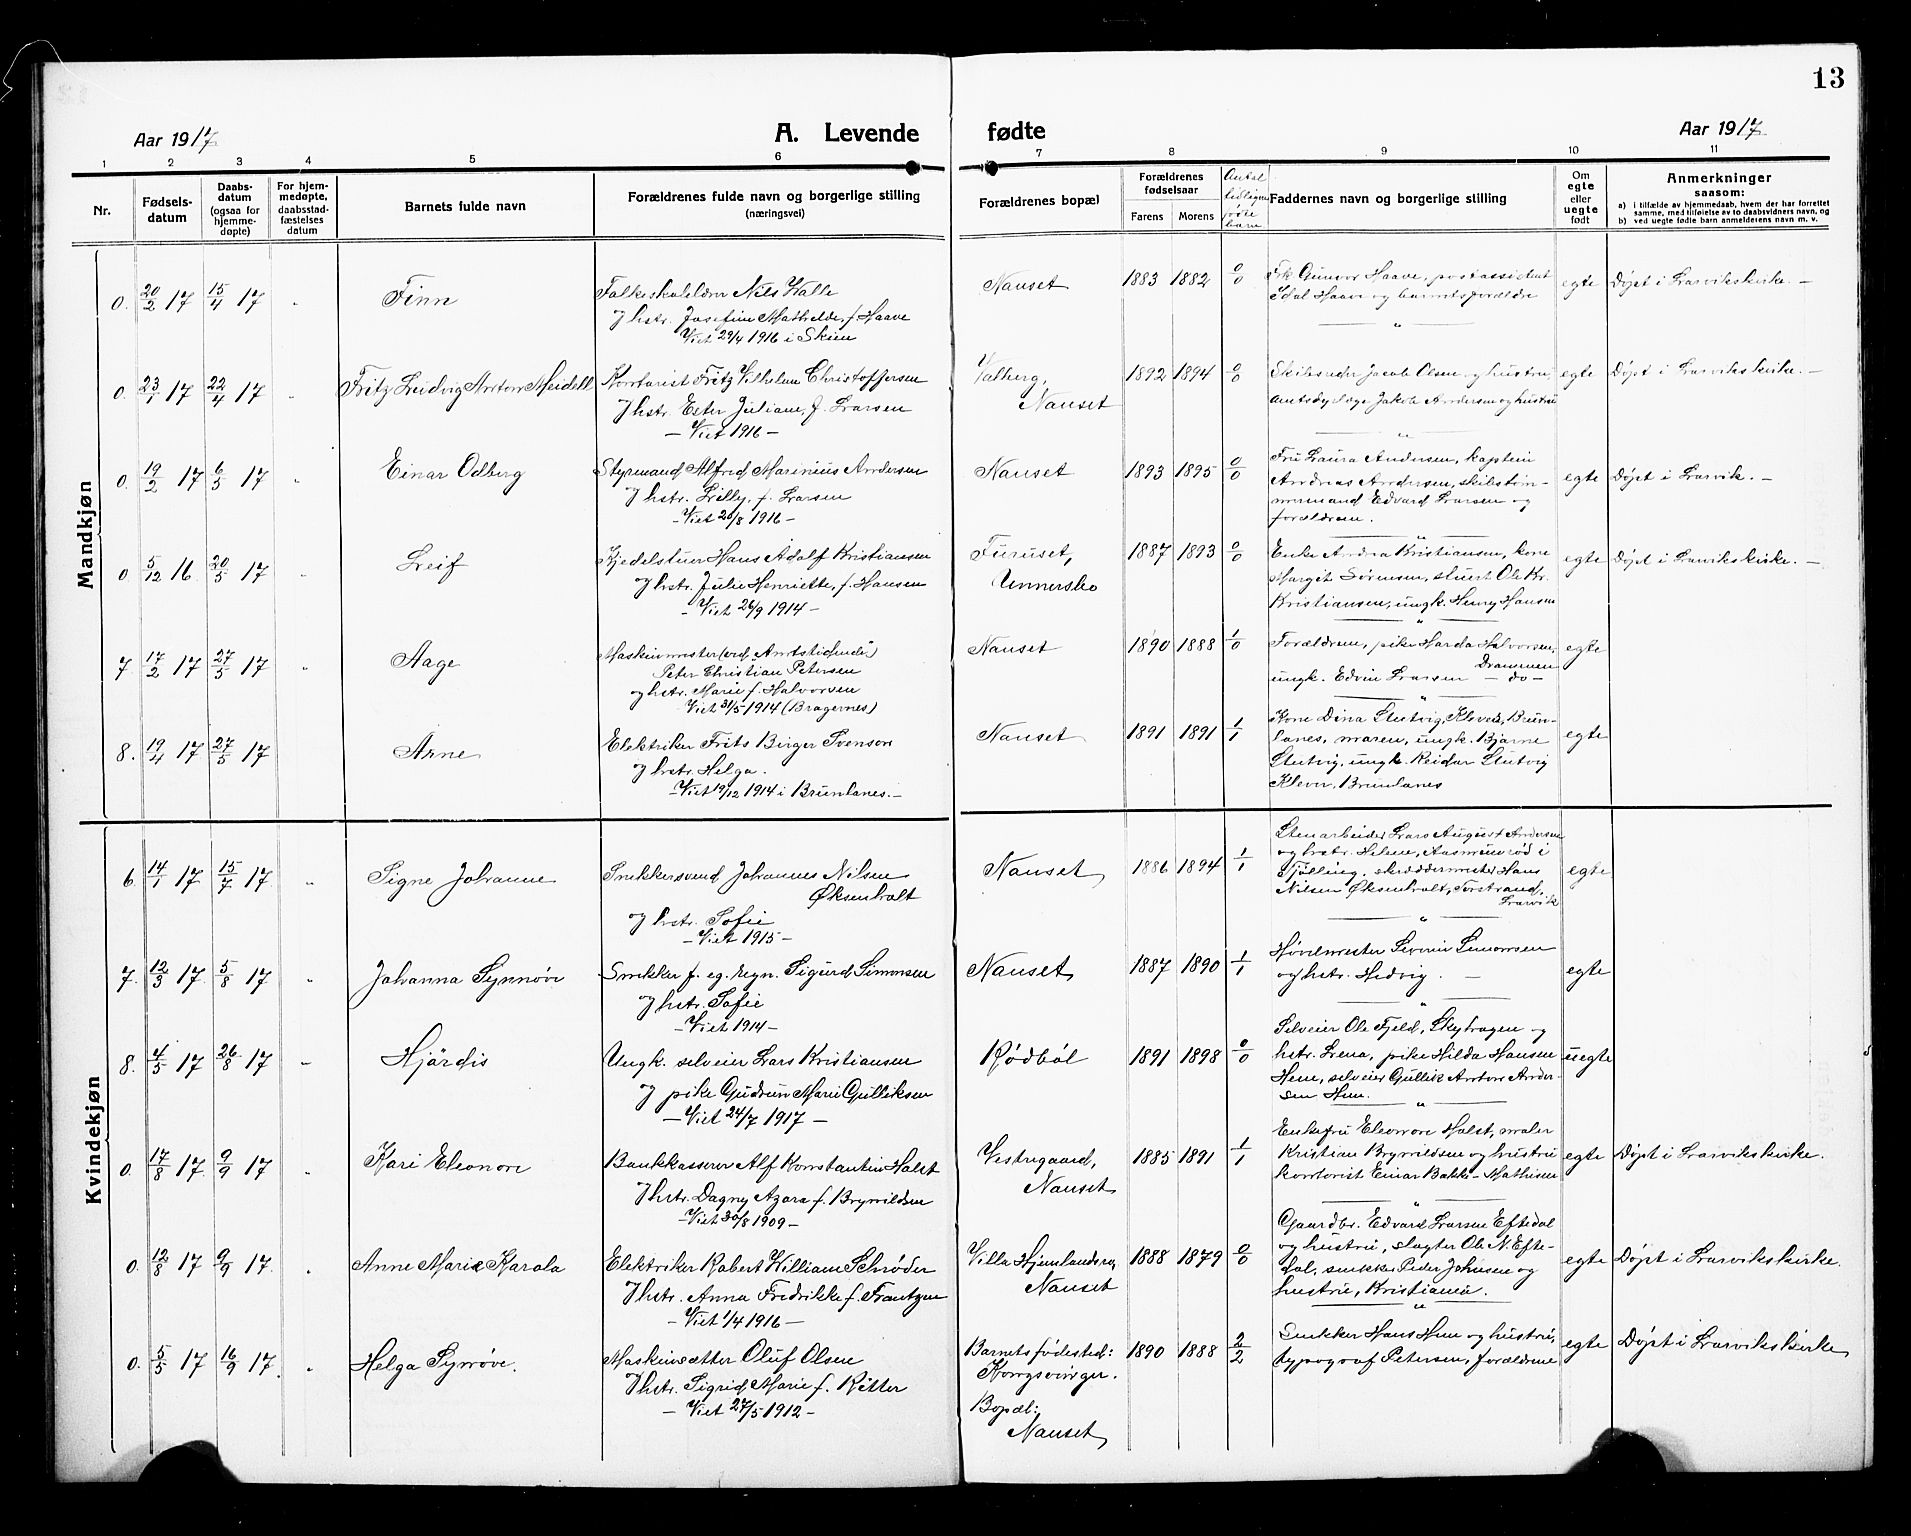 13
Aar 1917
A. Levende fødte
Aar 1917
1 2 3 4 5 6 7 8 9 10 11
Nr.
Fødsels-
datum
Daabs-
datum
(ogsaa for
hjemme-
døpte)
For hjem-
medøpte,
daabsstad-
fæstelses
datum
Barnets fulde navn
Forældrenes fulde navn og borgerlige stilling
(næringsvei)
Forældrenes bopæl
Forældrenes
fødselsaar
Farens Morens
Antal
tidligere
fødte
barn
Faddernes navn og borgerlige stilling
Om
egte
eller
uegte
født
Anmerkninger
saasom:
a) i tilfælde av hjemmedaab, hvem der har forrettet
samme, med tilføielse av to daabsvidners navn, og
b) ved uegte fødte barn anmelderens navn m. v.
Mandkjøn
0. 20/2 17 15/4 17 " Finn
Folkeskolelærer Nils Kalle
og hstr. Josefine Mathilde, f. Haave
Viet 29/4 1916 i Skien
Nanset 1883 1882 0/0
Frk. Gunvor Haave, postassistent
Idal Haave og barnets forældre
egte Døpt i Larviks kirke. —
0. 23/1 17 22/4 17 " Fritz Ludvig Anton Meidell
Kontorist Fritz Vilhelm Christoffersen
og hstr. Ester Juliane, f. Larsen
— Viet 1916 —
Valberg,
Nanset
1892 1894 0/0
Skibsreder Jacob Olsen og hustru,
amtsdyrlæge Jakob Andersen og hustru
egte Døpt i Larviks kirke. —
0. 19/2 17 6/5 17 " Einar Odberg
Styrmand Alfred Marinius Andersen
og hstr. Lilly, f. Larsen
— Viet 20/8 1916 —
Nanset 1893 1895 0/0
Fru Laura Andersen, kaptein
Andreas Andersen, skibstøm-
mermand Edvard Larsen og
forældrene.
egte Døpt i Larvik. —
0. 5/12 16 20/5 17 Leif
Kjedelstuer Hans Adolf Kristiansen
og hstr. Julie Henriette, f. Hansen
— Viet 26/9 1914 —
Furuset,
Unnersbo
1887 1893 0/0
Enke Andrea Kristiansen, kone
Margit Sørensen, stuert Ole Kr.
Kristiansen, ungk. Henry Hansen
egte Døpt i Larviks kirke. —
7. 17/2 17 27/5 17 " Aage
Maskinmester (ved „Amtstidende")
Peter Christian Petersen
og hstr. Marie f. Halvorsen
Viet 31/5 1914 (Bragernes)
Nanset 1890 1888 1/0
Forældrene, pike Harda Halvorsen,
Drammen
ungk. Edvin Larsen — do —
egte
8. 19/4 17 27/5 17 Arne
Elektriker Frits Birger Svenson
og hstr. Helga.
— Viet 19/12 1914 i Brunlanes. —
Nanset 1891 1891 1/1
Kone Dina Stutvig, Klever, Brun-
lanes, moren, ungk. Bjarne
Stutvig, ungk. Reidar Stutvig
Klever, Brunlanes
egte
Kvindekjøn
6. 14/1 17 15/7 17 " Signe Johanne
Snekkersvend Johannes Nilsen
Øksenholt
og hstr. Sofie
— Viet 1915 —
Nanset 1886 1894 1/1
Stenarbeider Lars August Andersen
og hstr. Helene, Aasmundrød i
Tjølling, skræddermester Hans
Nilsen Øksenholt, Torstrand,
Larvik
egte
7. 12/3 17 5/8 17 " Johanna Synnøve
Snekker f. eg. regn. Sigurd Simonsen
og hstr. Sofie
— Viet 1914 —
Nanset 1887 1890 1/1
Høvlemester Severin Simonsen
og hstr. Hedvig. —
egte
8. 4/5 17 26/8 17 Hjördis
Ungk. selveier Lars Kristiansen
og pike Gudrun Marie Gulliksen
— Viet 24/7 1917 —
Rødbøl 1891 1898 0/0
Selveier Ole Fjeld, Skyhagen og
hstr. Lena, pike Hilda Hansen
Hem, selveier Gullik Anton Ander-
sen Hem.
uegte
0. 17/8 17 9/9 17 " Kari Eleonore
Bankkasserer Alf Konstantin Holst
og hstr. Dagny Azora f. Brynildsen
— Viet 30/8 1909 —
Vestregaard,
Nanset
1885 1891 1/1
Enkefru Eleonore Holst, maler
Kristian Brynildsen og hustru
kontorist Einar Bakke-Mathisen
egte Døpt i Larviks kirke.
0. 12/8 17 9/9 17 " Anne Marie Karola
Elektriker Robert William Schrøder
og hstr. Anna Fredrikke f. Frantzen
— Viet 1/4 1916 —
Villa
Nanset
1888 1879 0/0
Gaardbr. Edvard Larsen Eftedal
og hustru, slagter Ole N. Efte-
dal, snekker Peder Johnsen og
hustru, Kristiania.
egte Døpt i Larviks kirke.
0. 5/5 17 16/9 17. " Helga Synnøve.
Maskinsætter Oluf Olsen
og hstr. Sigrid Marie f. Ritter
— Viet 27/5 1912 —
Barnets fødested:
Kongsvinger.
Bopæl:
Nanset
1890 1888 2/2
Snekker Hans Hem og hustru,
typograf Petersen, forældrene
egte Døpt i Larviks kirke